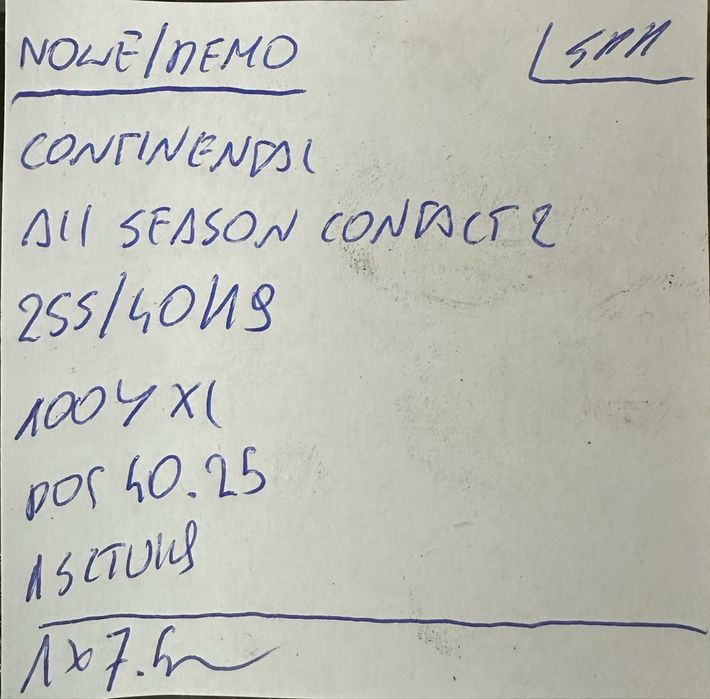 NOWE/DEMO
CONTINENTAL
All SEASON CONTACT 2
255/40/19
100Y XL
DOT 40.25
1 SZTUKA
1x7.5